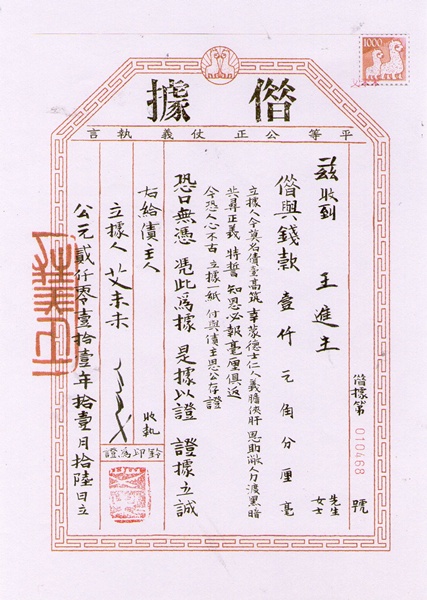 1000
僣據
平等公正仗義執言
僣據第 010468 號
茲收到 王進生 先生
女士
僣與錢款 壹仟 元角分厘毫
立據人今莫名債臺高筑 幸蒙德士仁人義膽俠肝 恩助敝人力渡黑暗
共尋正義 特誓知恩必報毫厘俱返
今恐人心不古 立據一紙 付與債主恩公存證
恐口無憑 憑此為據 是據以證 證據立誠
右給債主人 收執
立據人 艾未未
鈐印為證
公元貳仟零壹拾壹年拾壹月拾陸日立